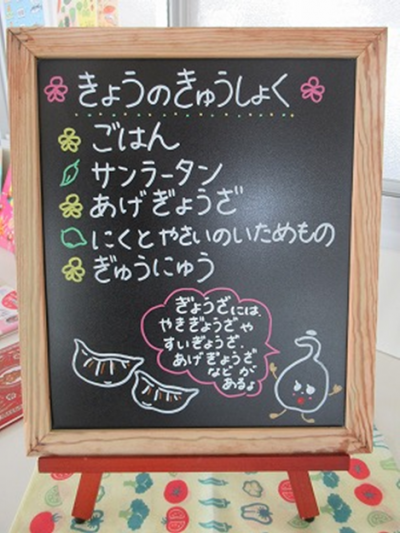 きょうのきゅうしょく
ごはん
サンラータン
あげぎょうざ
にくとやさいのいためもの
ぎゅうにゅう
ぎょうざには、
やきぎょうざや
すいぎょうざ、
あげぎょうざ
などが
あるよ